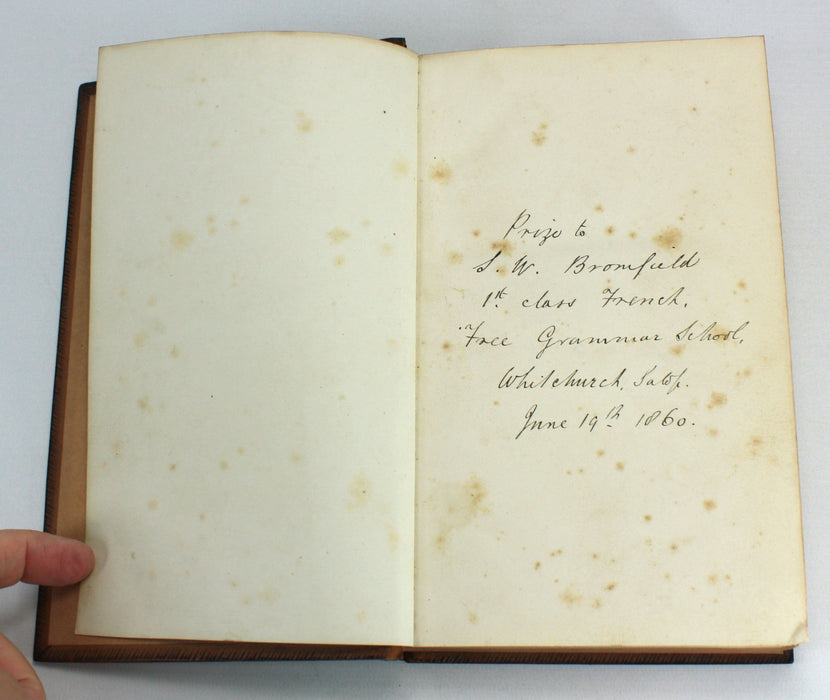 Prize to
S. W. Bromfield
1st. class French.
Free Grammar School,
Whitchurch, Salop.
June 19th 1860.